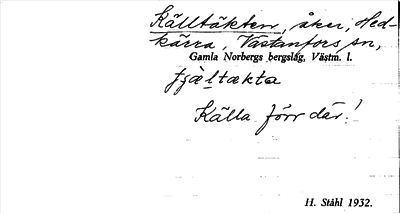 Källtäkten, åker, Hed-
kärra, Västanfors sn,
Gamla Norbergs bergslag, Västm. l.
Källa förr där!
H. Ståhl 1932.